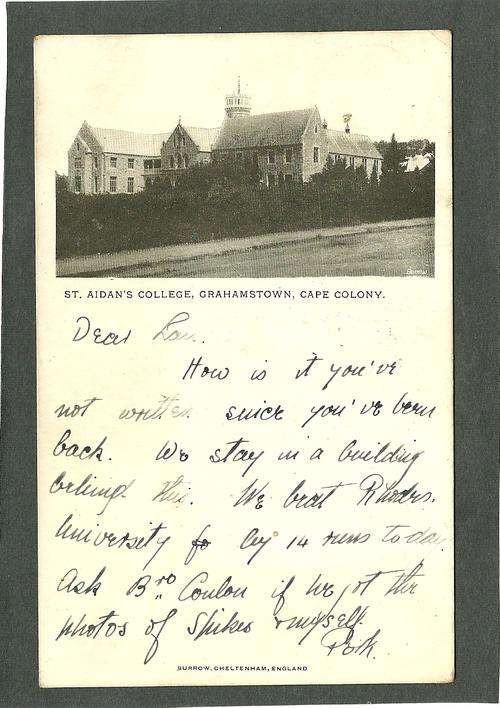 ST. AIDAN'S COLLEGE, GRAHAMSTOWN, CAPE COLONY.
Dear
How is it you've
not written since you've been
back. We stay in a building
behind this. We beat Rhodes.
University by 14 runs today
Ask Bro Conlon if he got the
photos of Spikes & myself.
BURROW, CHELTENHAM, ENGLAND